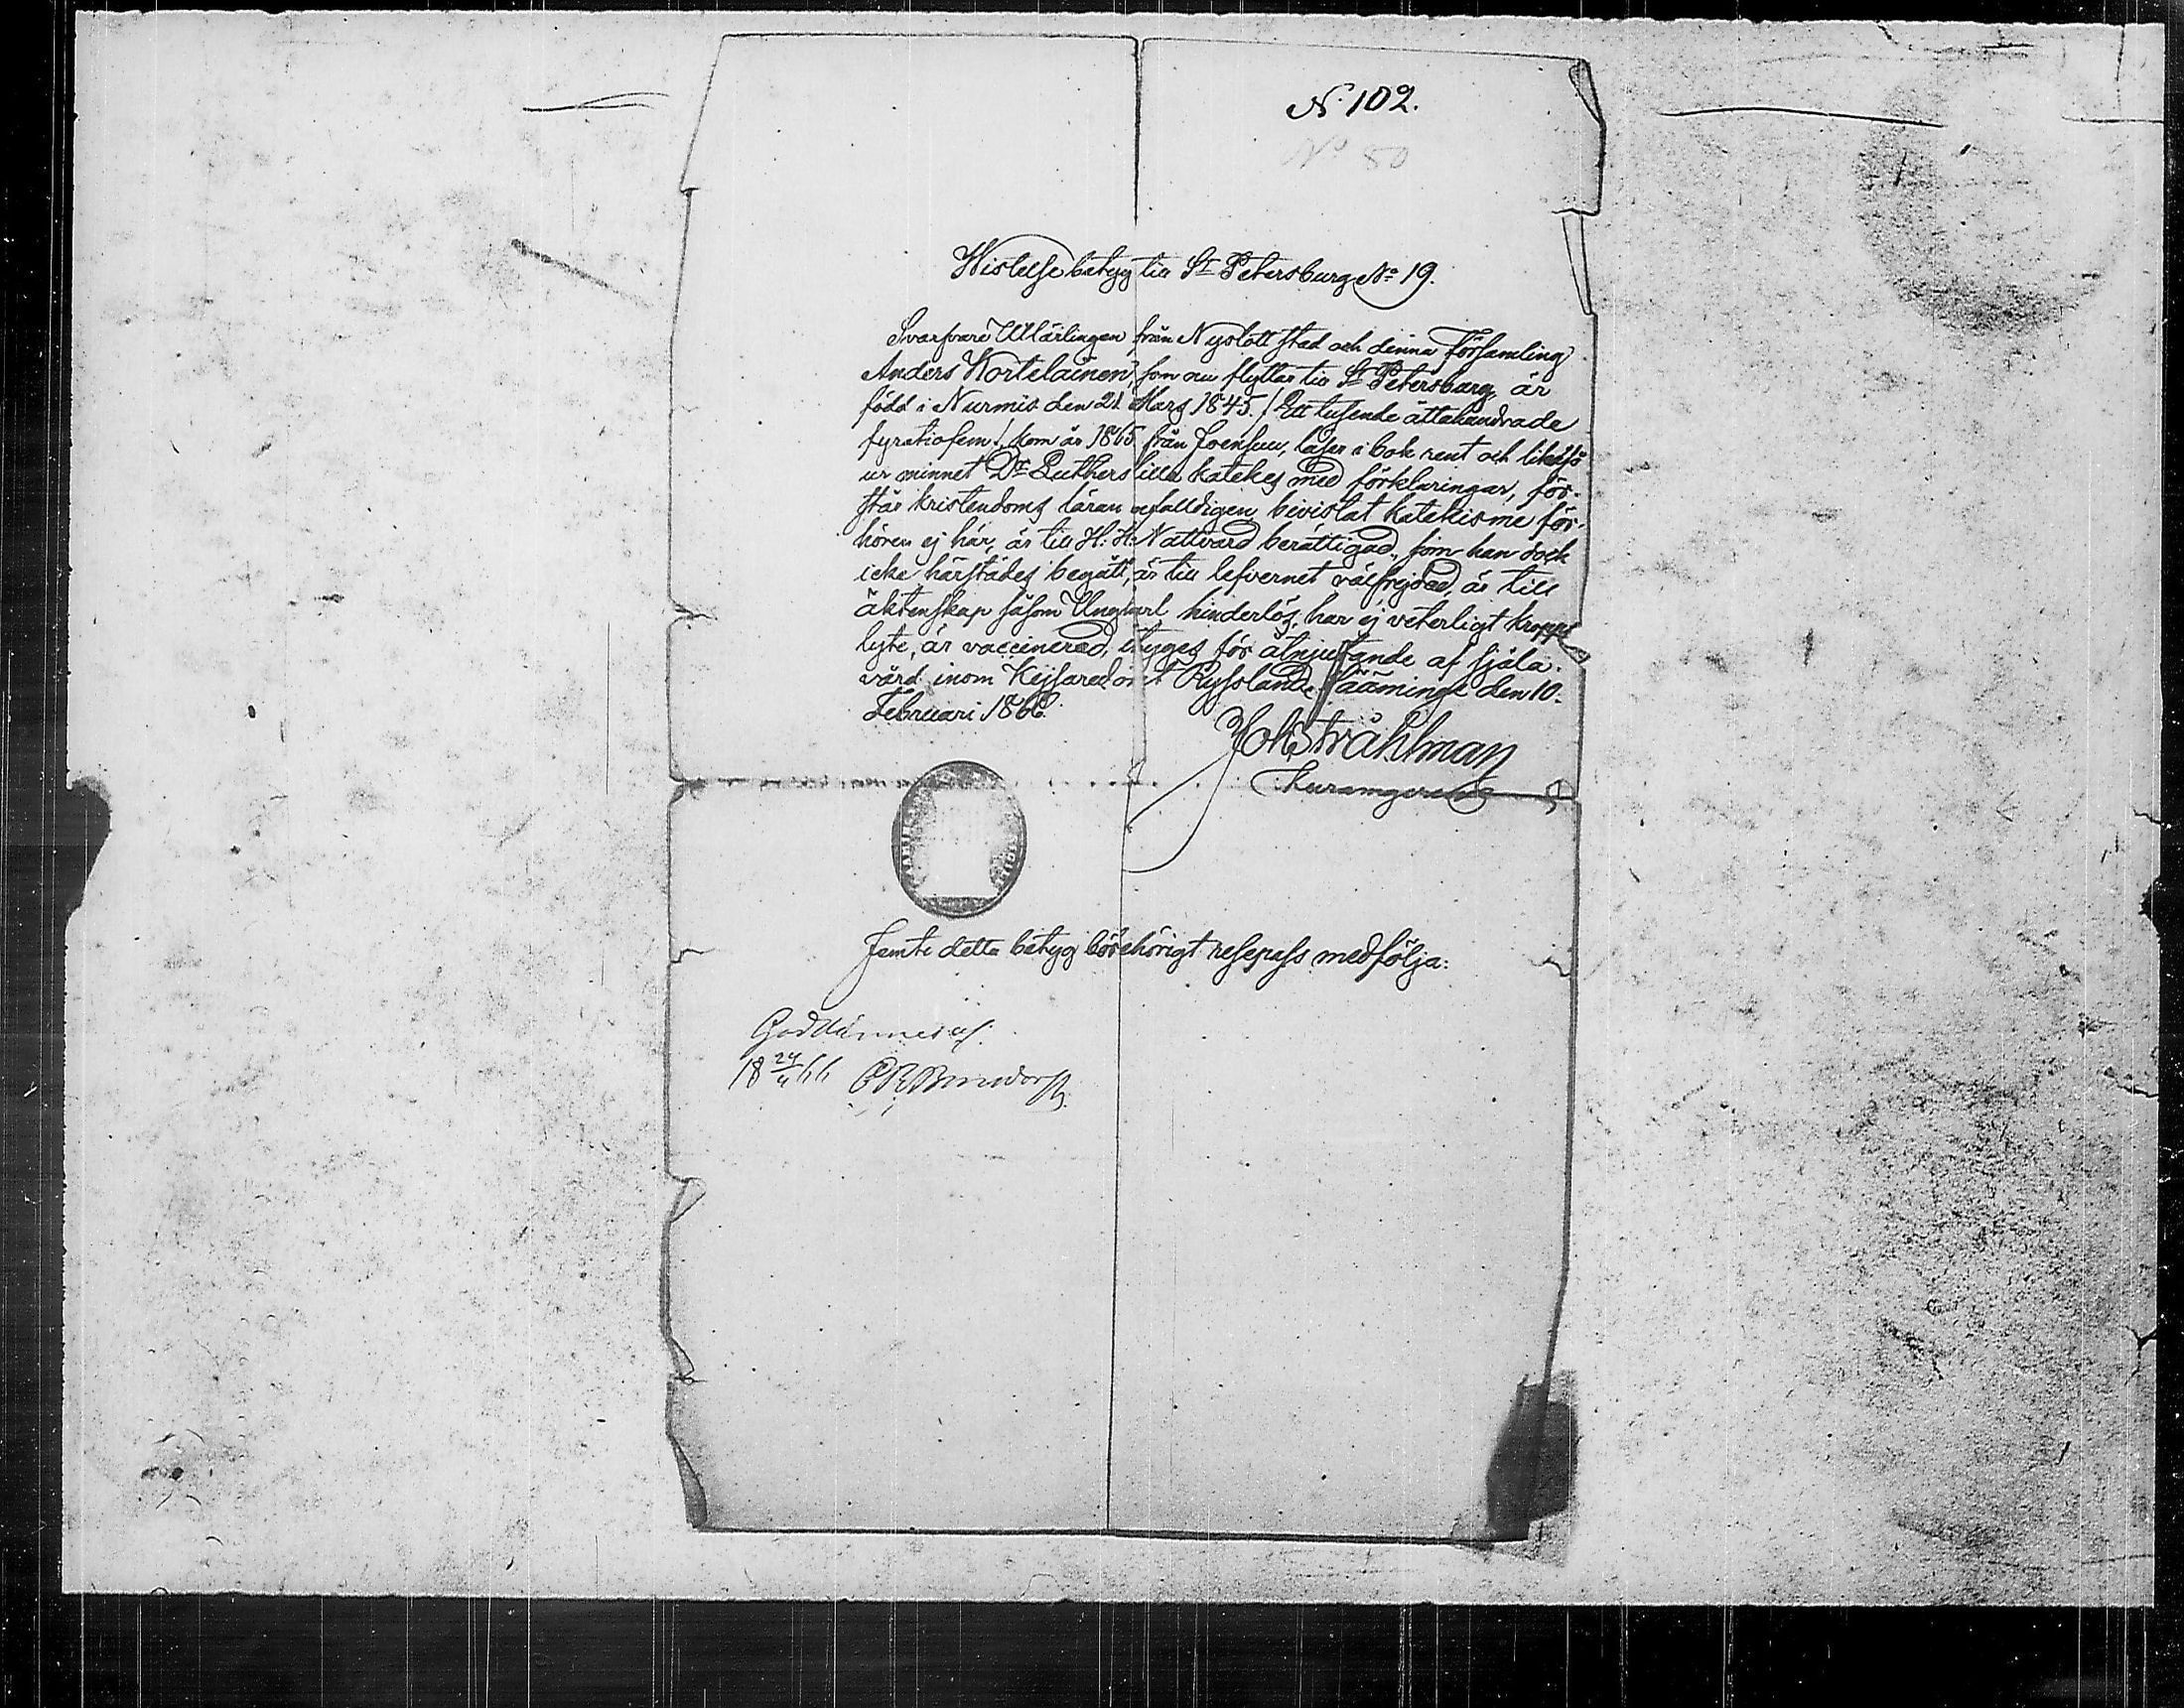 N. 102.
No 80
Wistelse betyg till St Petersburg No 19.
Svarfvare Utlärlingen från Nyslott stad och denna Församling
Anders Kortelainen, som nu flyttar till St Petersburg, är
född i Nurmis den 21 Mars 1845. / Ett tusende åttahundrade
fyratiofem / kom år 1865 från Joensuu, läser i bok rent och likaså
ur minnet Dr Luthers lilla Katekes med förklaringar, för-
står kristendoms läran enfalldigen, bevistat Katekisme för-
hören ej här, är till H: H: Nattvard berättigad, som han dock
icke härstädes begått, är till lefvernet välfrejdad, är till
äktenskap såsom Ungkarl hinderlös, har ej veterligt kropps
lyte, är vaccinerad, utgges för åtnjutande af själa-
vård inom Kejsaredömet Ryssland. Sääminge den 10.
Februari 1866.
Joh Stråhlman
Jemte detta betyg bör behörigt respass medföljа:
18 24/4 66